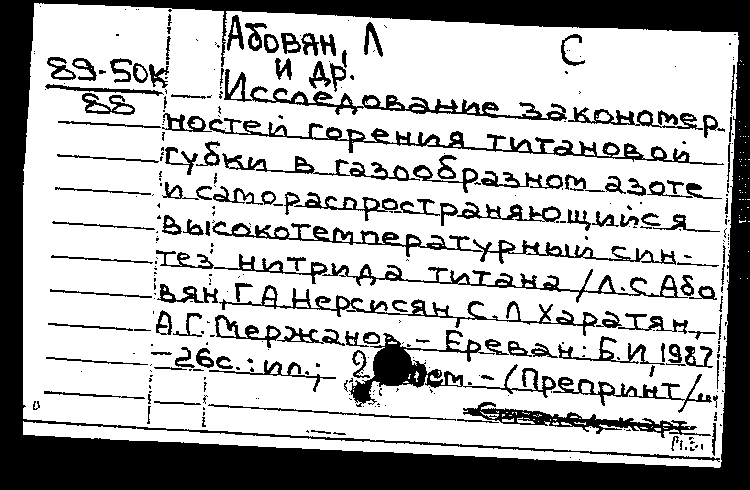 Абовян, Л С
и др.
89-50к
88
Исследование закономер
ностей горения титановой
губки в газообразном азоте
и самораспространяющийся
высокотемпературный син-
тез нитрида титана / Л.С. Або
вян, Г.А. Нерсисян, С.Л. Харатян,
А.Г. Мержанов. – Ереван: Б.И, 1987
– 26с.: ил.; 2 см. – (Препринт/...
См. след. карт